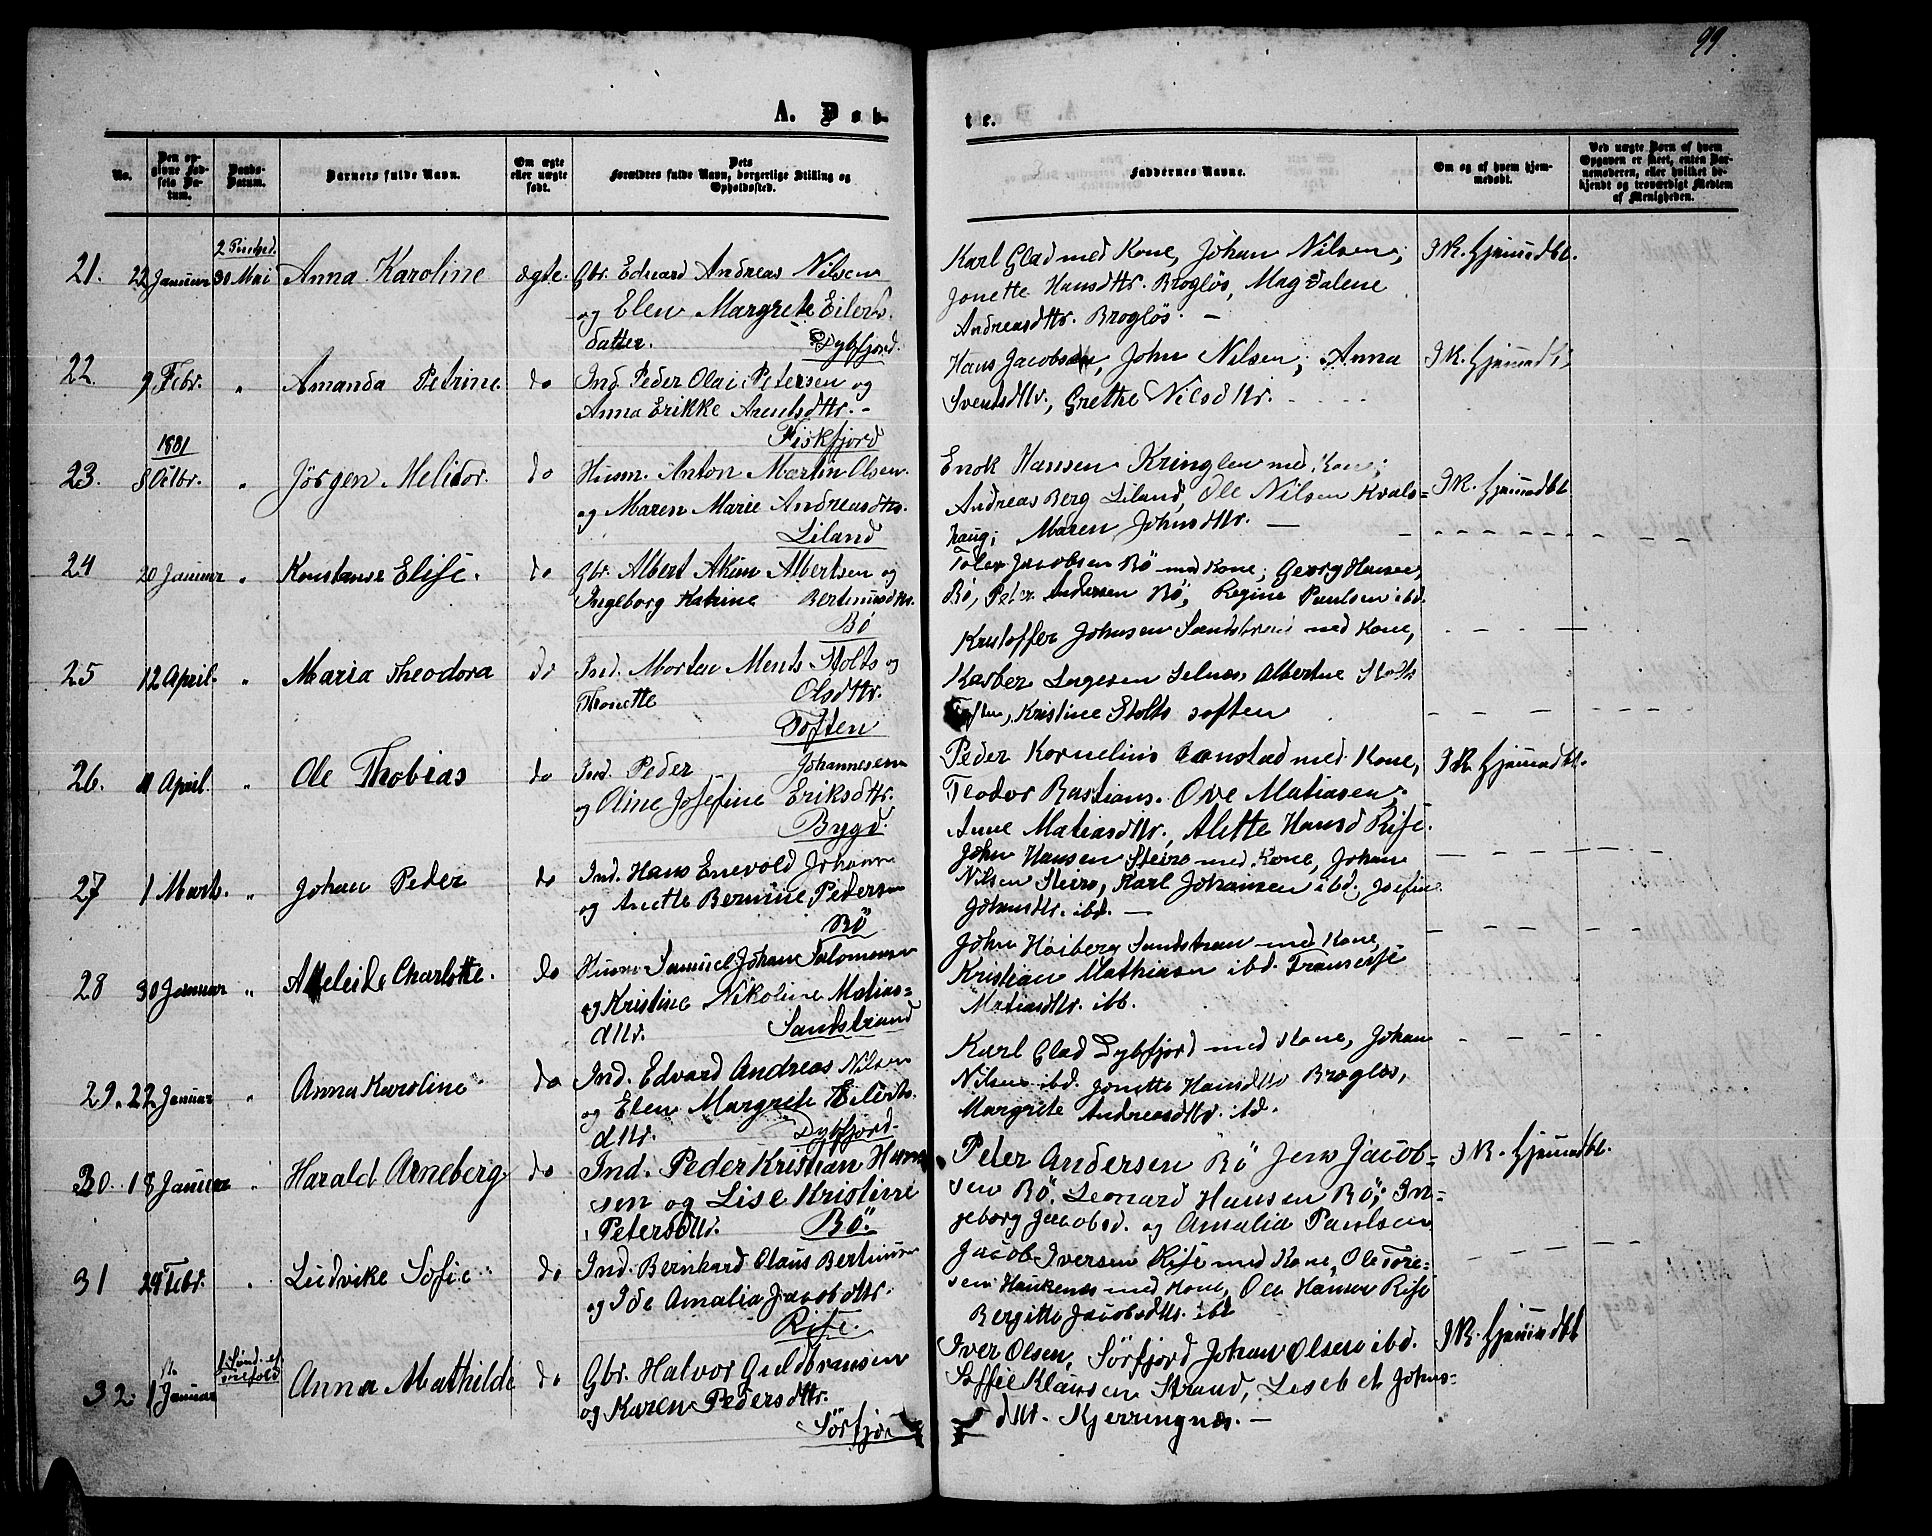 99
A. Døb-
te.
No.
Den op-
givne Fød-
sels Da-
tum.
Daabs-
Datum.
Barnets fulde Navn.
Om ægte
eller uægte
født.
Dets
Forældres fulde Navn, borgerlige Stilling og
Opholdssted.
Faddernes Navne.
Om og af hvem hjem-
medøbt.
Ved uægte Børn af hvem
Opgaven er skeet, enten Bar-
nemoderen, eller hvilket be-
kjendt og troværdigt Medlem
af Menigheden.
2 Pintsed.
21. 22 Januar 30 Mai Anna Karoline ægte. Gbr. Edvard Andreas Nilsen
og Elen Margrete Eilerts-
datter. Dybfjord.
Karl Glad med Kone, Johan Nilsen;
Jonette Hansdttr. Brogløs, Magdalene
Andreasdttr. Brogløs. -
22. 9 Febr. " Amanda Petrine do Ind. Peder Olai Petersen og
Anna Erikke Arentsdttr. -
Fiskfjord
Hans Jacobsen, John Nilsen; Anna
Sventsdttr., Grethe Nilsdttr.
1881
23. 8 Octbr. " Jörgen Melidor. do Husm. Anton Martin Olsen
og Maren Marie Andreasdttr.
Liland
Enok Hansen Kringlen med Kone;
Andreas Berg Liland, Ole Nilsen Kvals-
haug; Maren Johnsdttr. -
24 20 Januar " Konstanse Elise. do Gbr. Albert Akim Albertsen og
Ingeborg Katrine Bertinusdttr.
Bö
Jacobsen Bö med Kone; Georg Hansen
Bö, Peter Andersen Bö, Regine Paulsen ibd.
25 12 April. " Maria Theodora do Ind. Morten Ments Stolts og
Tronette Olsdttr.
Toften
Kristoffer Johnsen Sandstrand med Kone,
Kasber Selnæs, Albertine Stolts
Toften, Kristine Stolts Toften
26. 11 April. " Ole Thobias do Ind. Peder Johannesen
og Oline Josefine Eriksdttr.
Bygd.
Peder Kornelius med Kone,
Teodor Bastians. Ove Matiasen,
Anne Matiasdttr, Alette Hansd Rise.
27 1 Marts. " Johan Peder do Ind. Hans Enevold Johan
og Anette Bernine Pedersen
Bö
John Hansen Steiro med Kone, Johan
Nilsen Steiro, Karl Johansen ibd; Josefine
Johansdttr. ibd. -
28 30 Januar " Adeleide Charlotte. do Husm. Samuel Johan Salomonsen
og Kristine Nikoline Matias-
dttr. Sandstrand
John Hoiberg Sandstran med Kone,
Kristian Mathiasen ibd.
Matiasdttr. ibd.
29. 22 Januar " Anna Karoline do Ind. Edvard Andreas Nilsen
og Elen Margrete Eilerts-
dttr. Dybfjord.
Karl Glad Dybfjord med Kone, Johan
Nilsen ibd. Jonette Hansdttr Brogløs,
Margrete Andreasdttr. ibd.
30. 18 Januar " Harald Arneberg do Ind. Peder Kristian Han-
sen og Lise Kristine
Petersdttr. Bö.
Peter Andersen Bö Jens Jacob-
sen Bö. Leonard Hansen Bö; In-
geborg Jacobsd. og Amalia Paulsen
31 24 Febr. " Ludvike Sofie do Ind. Bernhard Olaus Bertinusen
og Ide Amalia Jacobdttr.
Rise.
Jacob Iversen Rise med Kone, Ole Tore-
sen Haukenes med Kone, Ole Hansen Rise
Bergitte Jacobsdttr. ibd
32. 1 Januar Anna Mathilde do Gbr. Halvor Guldbransen
og Karen Pedersdttr.
Sörfjor
Iver Olsen, Sörfjord Johan Olsen ibd.
Soffie Klausen Strand, Lisebet Johns-
dttr. Kjerringnes. -